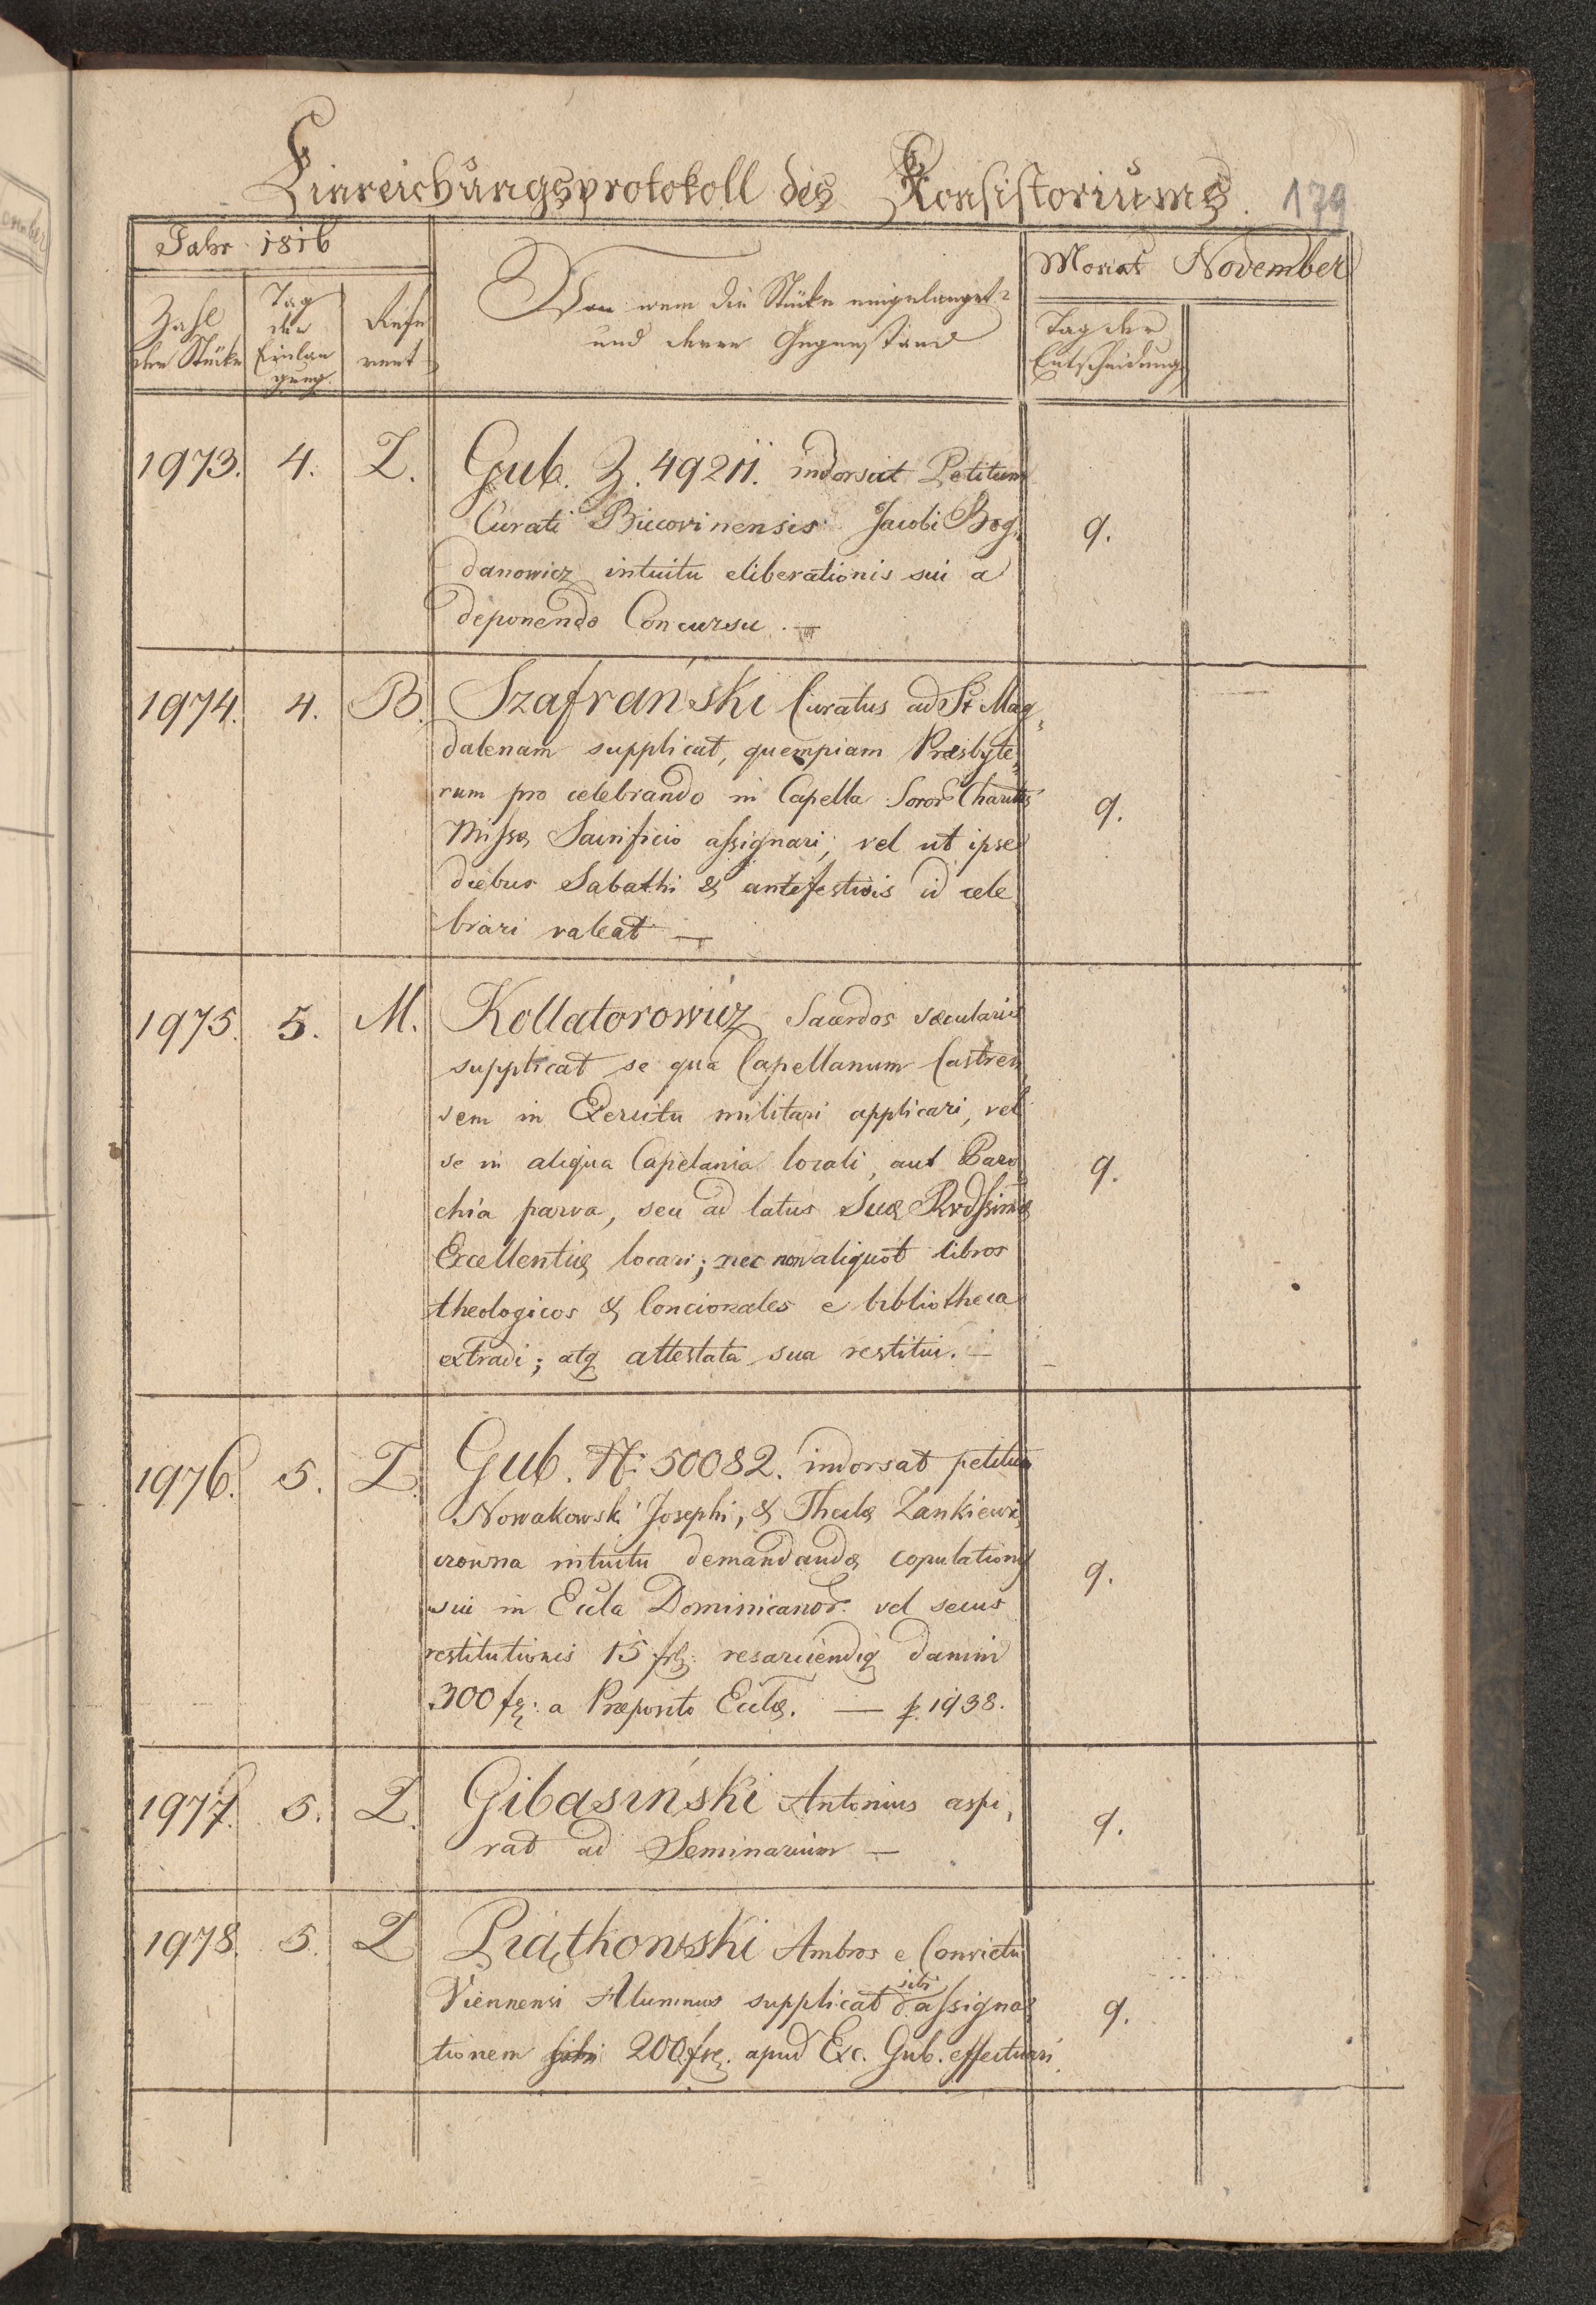 Einreichungsprotokoll des Konsistoriums. 179
Jahr 1816
Monat November
Zahl der Stücke
Tag der Einlangung
Referent
Von wem die Stücke eingelanget
und deren Gegenstand
Tag der
Entscheidung
1973. 4. Z. Gub. Z. 49211. indorsat Petitum
Curati Bucovinensis Jacobi Bog,
danowicz intuitu eliberationis sui a 9.
deponendo Concursu. —
1974. 4. B. Szafrański Curatus ad St Mag,
dalenam supplicat, quempiam Præsbyte,
rum pro celebrando in Capella Soror Charittis 9.
Missæ Sacrificio assignari, vel ut ipse
diebus Sabathi & antefestivis id cele
brari valeat —
1975. 5. M. Kollatorowicz Sacerdos sæcularis
supplicat se qua Capellanum Castren,
sem in Exercitu militari applicari, vel
se in aliqua Capelania locali, aut Paro, 9.
chia parva, seu ad latus Suæ Rvdssimæ
Excellentiæ locari; nec non aliquot libros
theologicos & Concionales e bibliotheca
extradi; atq attestata sua restitui. —
1976. 5. Z. Gub. N: 50082. indorsat petitum
Nowakowski Josephi, & Theclæ Zankiewi,
czowna intuitu demandandæ copulationis 9.
sui in Eccla Dominicanor. vel secus
restitutionis 15 fr. resarciendiq damni
300 fr: a Præposito Ecclæ. — p. 1938.
1977. 5. Z. Gibasiński Antonius aspi, 9.
rat ad Seminarium —
1978. 5. Z Piątkowski Ambros e Convictu
Viennensi Alumnus supplicat sibi assigna, 9.
tionem sibi 200 fr. apud Exc. Gub. effectuari.